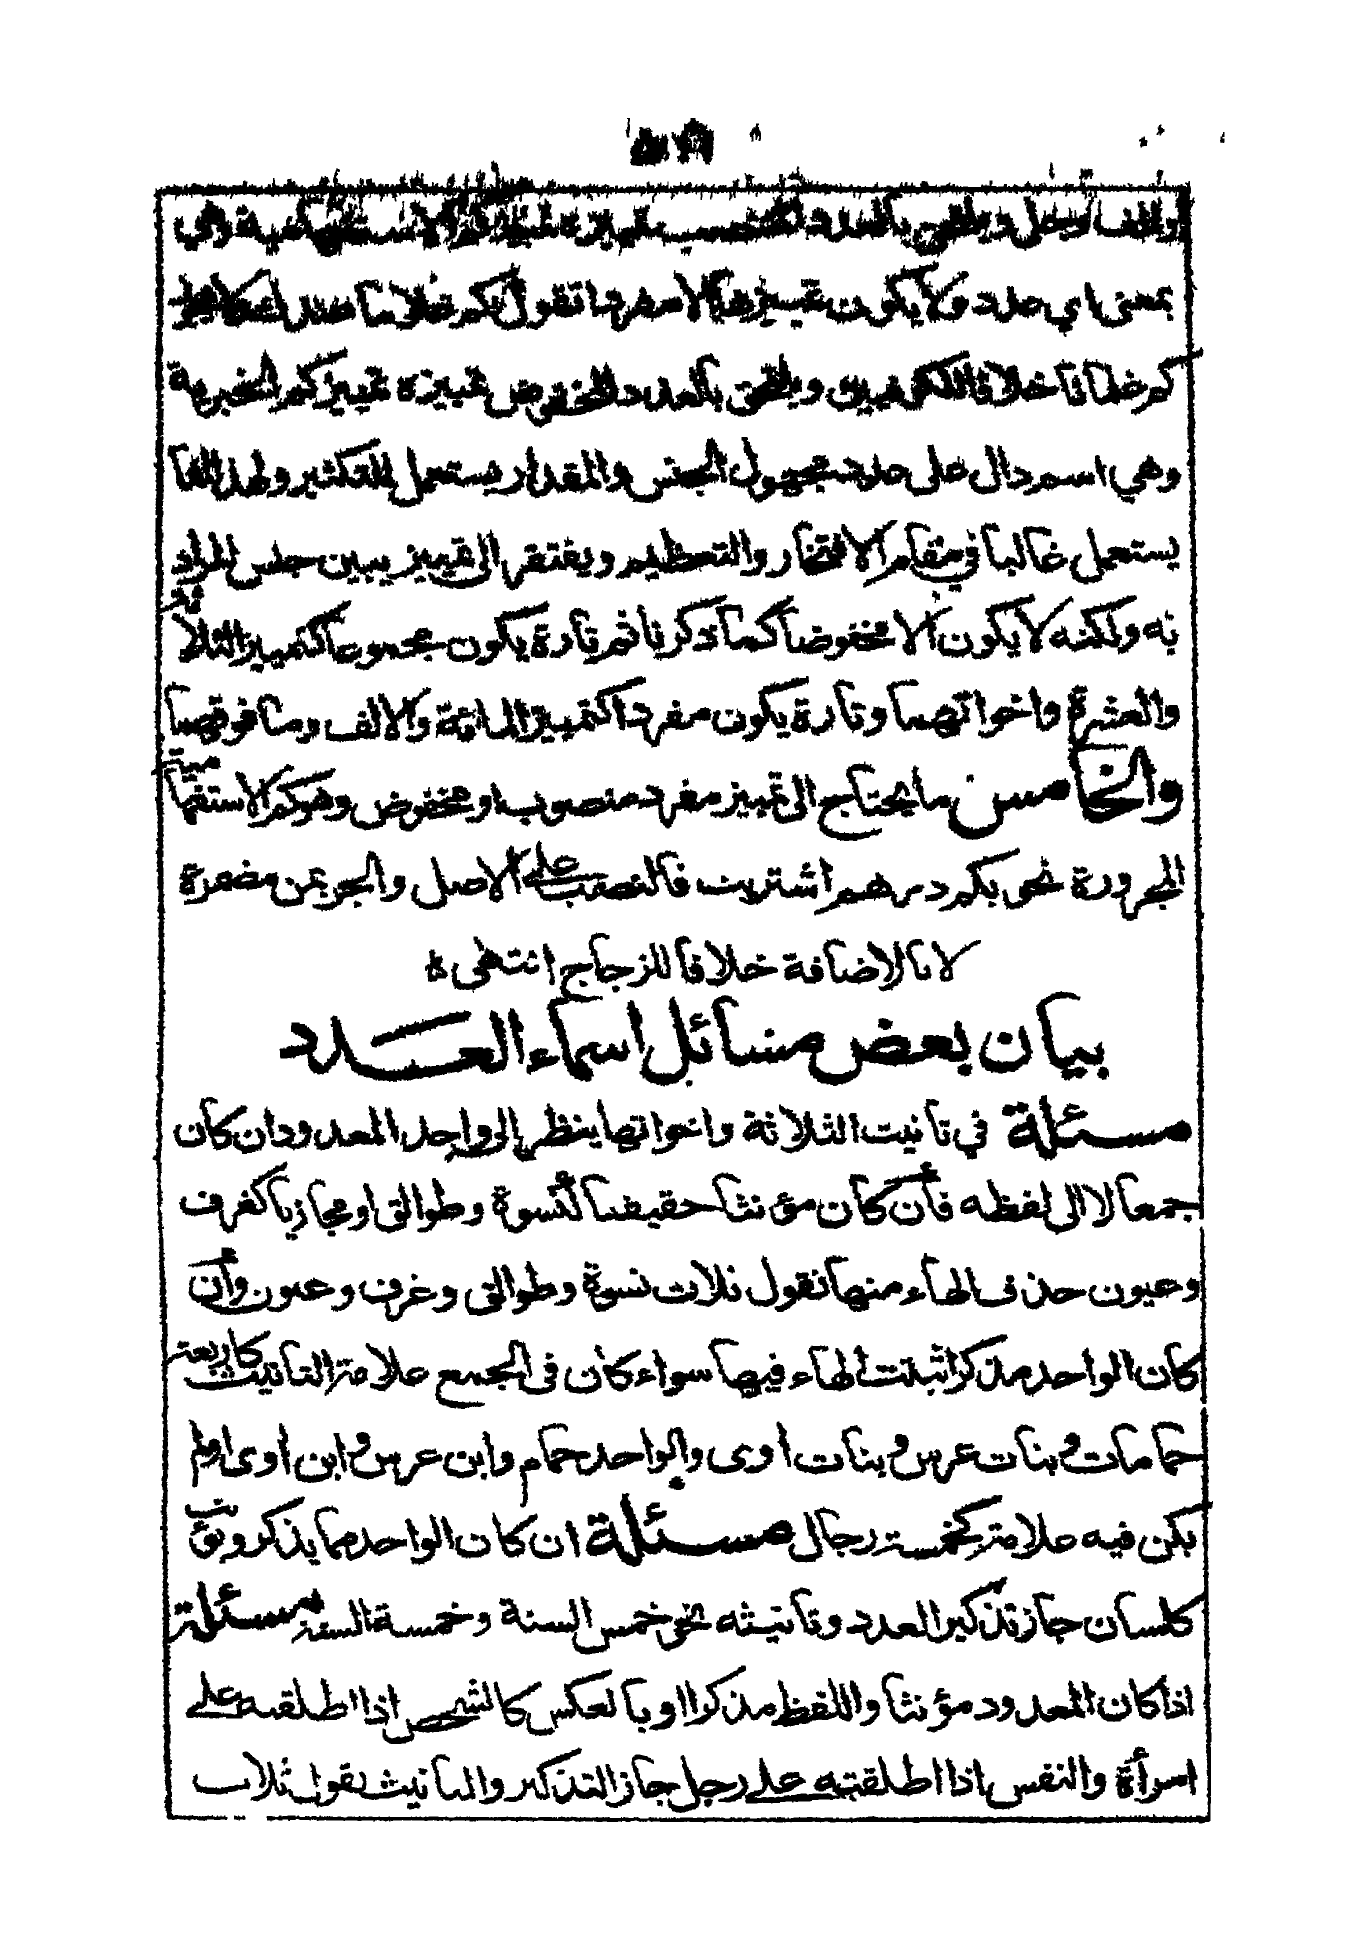 والالف وحل ويلحق بالعدد المنتصب تمييزه تمييز كم الاستفهامية وهي
بمعنى اي عدد ولا يكون تمييزها الا مفردا تقول كم غلاما عندك
كم غلمانا خلافا للكوفيين ويلحق بالعدد المخفوض تمييزه تمييز كم الخبرية
وهي اسم دال على عدد مجهول الجنس والمقدار يستعمل للتكثير ولهذا انما
يستعمل غالبا في مقام الافتخار والتعظيم ويفتقر الى تمييز يبين جنس المراد
به ولكنه لا يكون الا مخفوضا كما ذكرنا ثم تارة يكون مجموعا كتمييز الثلاثة
والعشرة واخواتهما وتارة يكون مفردا كتمييز المائة والالف وما فوقهما
والخامس ما يحتاج الى تمييز مفرد منصوب او مخفوض وهو كم الاستفهامية
المجرورة نحو بكم درهم اشتريت فالنصب على الاصل والجر بمن مضمرة
لا بالاضافة خلافا للزجاج انتهى ه
بيان بعض مسائل اسماء العدد
مسئلة في تانيث الثلاثة واخواتها ينظر الى واحد المعدود ان كان
جمعا لا الى لفظه فأن كان مؤنثا حقيقيا كنسوة وطوالق او مجازيا كغرف
وعيون حذف الهاء منها تقول ثلاث نسوة وطوالق وغرف وعيون وأن
كان الواحد مذكرا ثبتت الهاء فيها سواء كان في الجمع علامة التانيث كاربعة
حمامات وبنات عرس وبنات اوى والواحد حمام وابن عرس وابن اوى او لم
يكن فيه علامة كخمسة رجال مسئلة ان كان الواحد مما يذكر ويؤنث
كلسان جاز تذكير العدد وتانيثه نحو خمس السنة وخمسة السنة مسئلة
اذا كان المعدود مؤنثا واللفظ مذكرا او بالعكس كالشخص اذا اطلقته على
امرأة والنفس اذا اطلقته على رجل جاز التذكير والتانيث تقول ثلاث